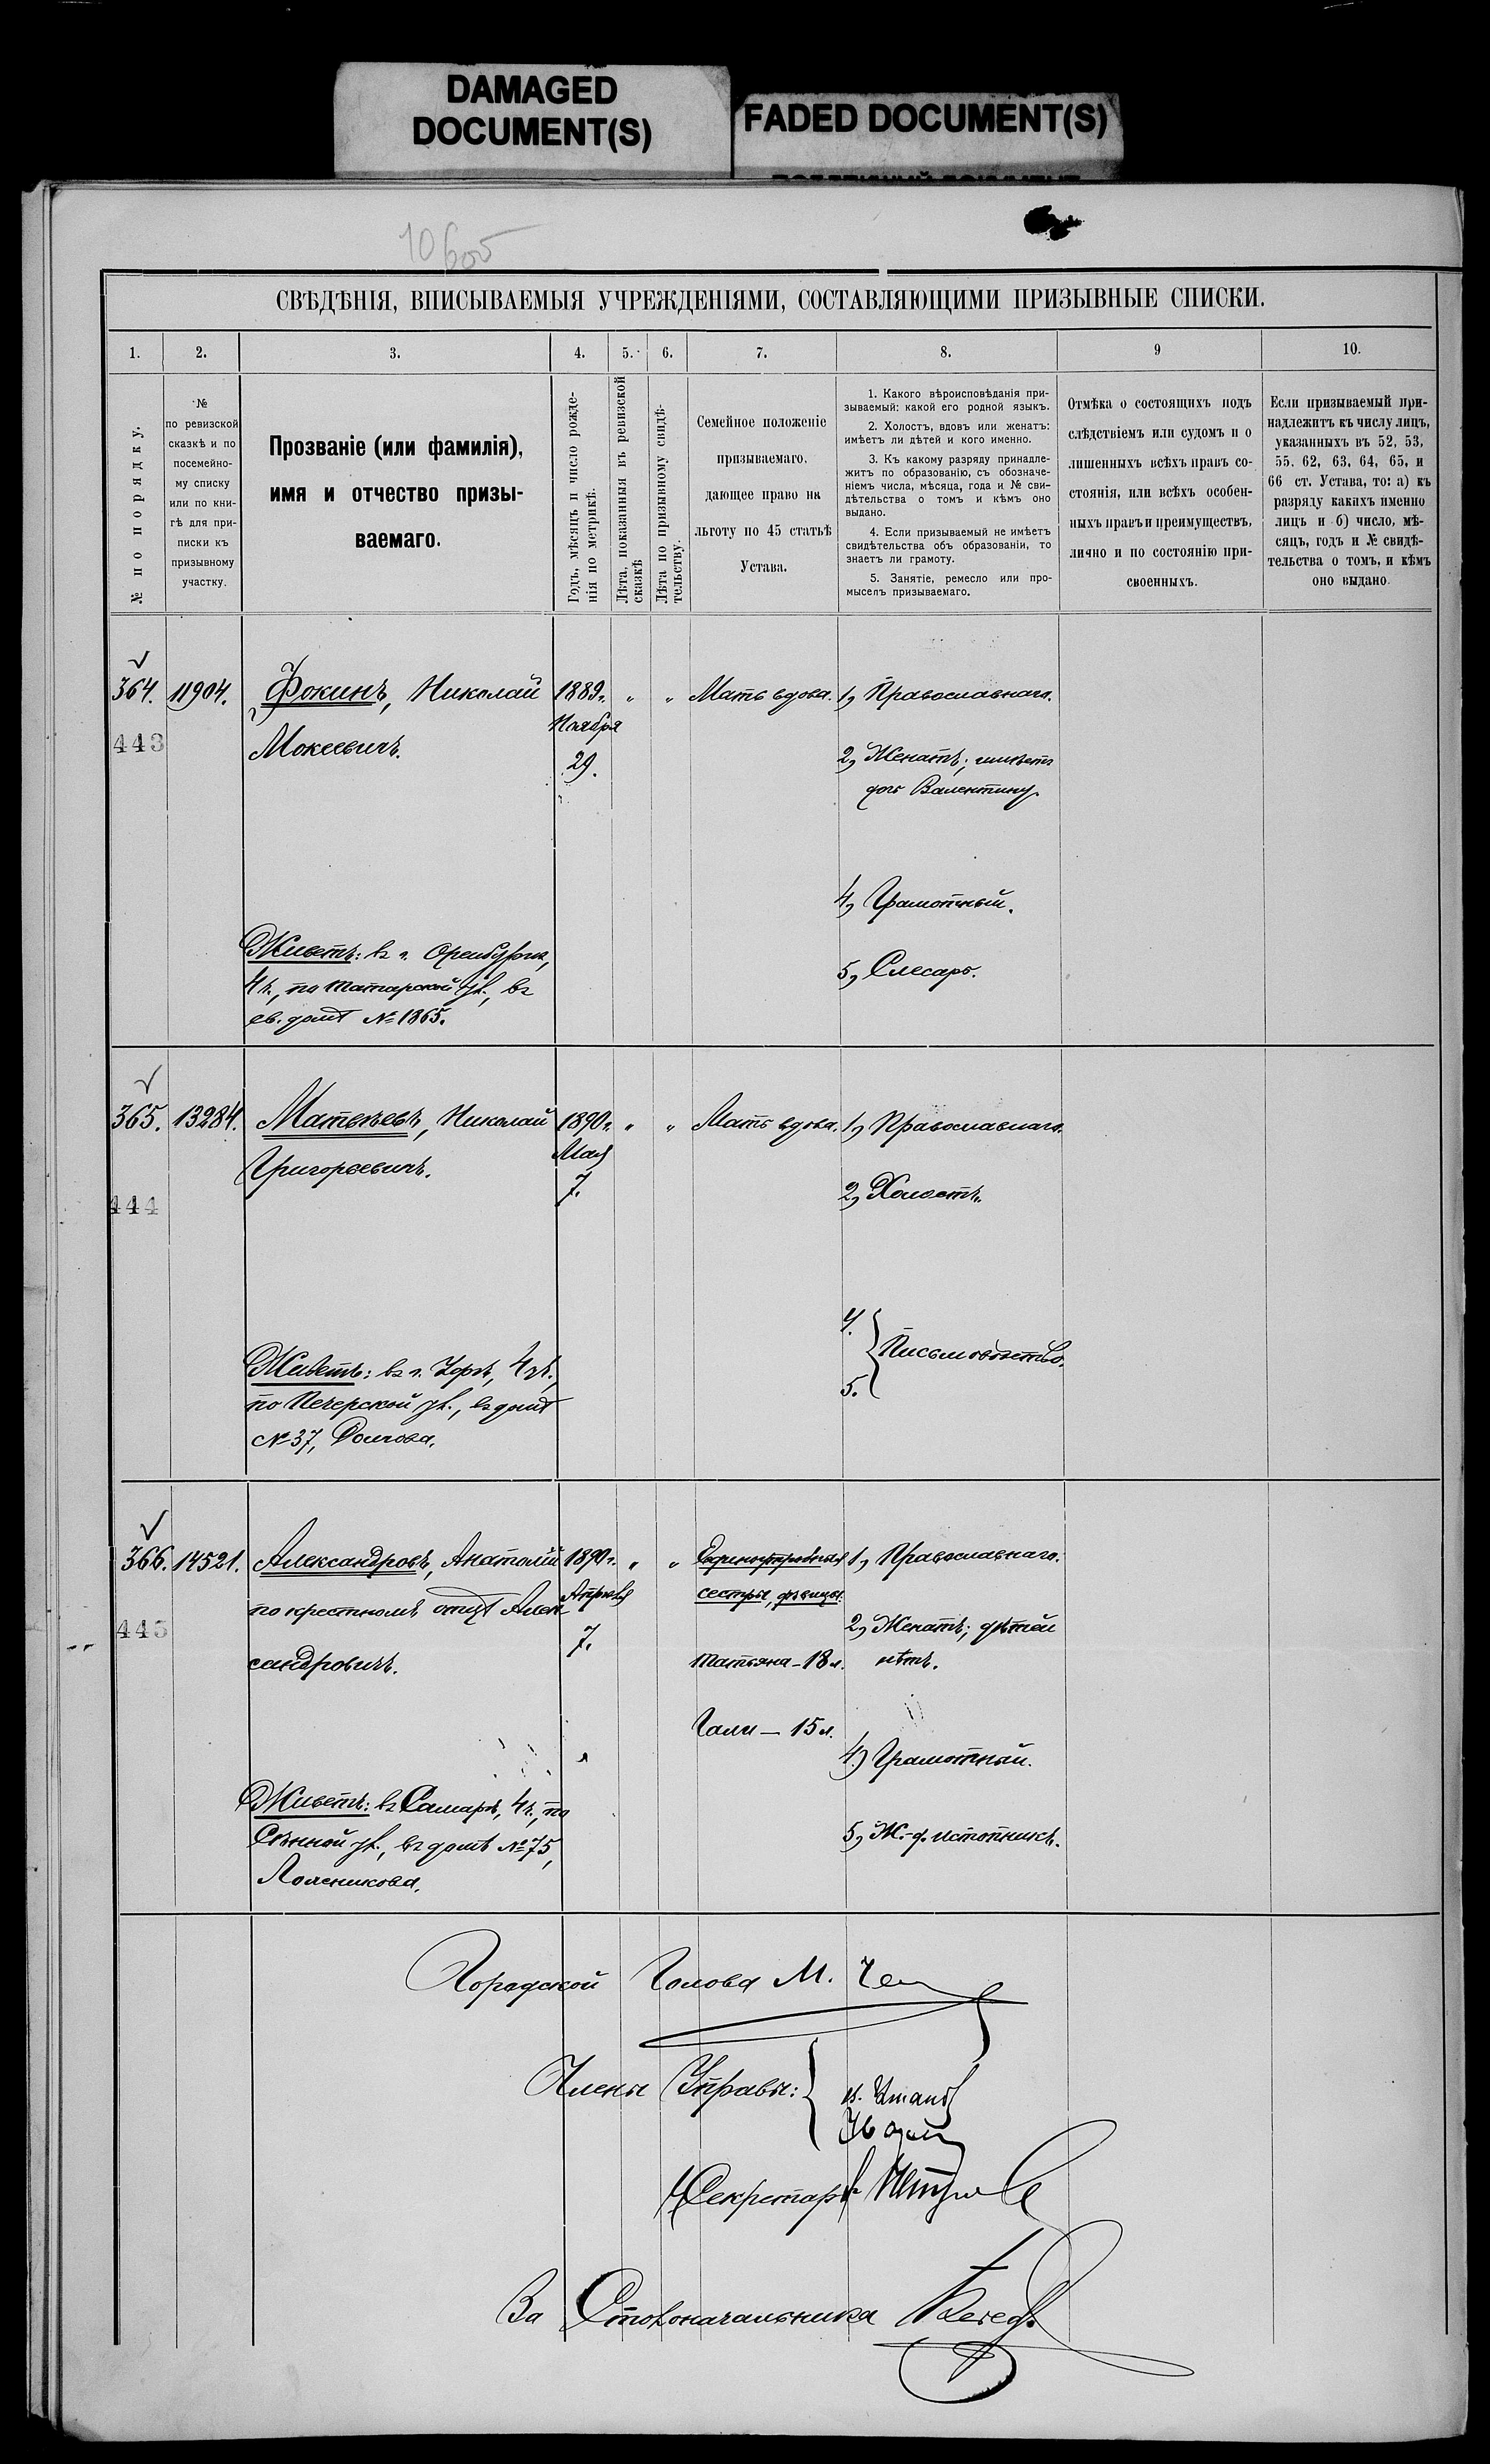 DAMAGED
DOCUMENT(S)
FADED DOCUMENT(S)
10605
СВѢДѢНІЯ, ВПИСЫВАЕМЫЯ УЧРЕЖДЕНІЯМИ, СОСТАВЛЯЮЩИМИ ПРИЗЫВНЫЕ СПИСКИ.
1. 2. 3. 4. 5. 6. 7. 8. 9 10.
№ по порядку.
№
по ревизской
сказкѣ и по
посемейно-
му списку
или по кни-
гѣ для при-
писки къ
призывному
участку.
Прозваніе (или фамилія),
имя и отчество призы-
ваемаго.
Годъ, мѣсяцъ и число рожде-
нія по метрикѣ.
Лѣта, показанныя въ ревизской
сказкѣ
Лѣта по призывному свидѣ-
тельству.
Семейное положеніе
призываемаго,
дающее право на
льготу по 45 статьѣ
Устава.
1. Какого вѣроисповѣданія при-
зываемый; какой его родной языкъ.
2. Холостъ, вдовъ или женатъ:
имѣетъ ли дѣтей и кого именно.
3. Къ какому разряду принадле-
житъ по образованію, съ обозначе-
ніемъ числа, мѣсяца, года и № сви-
дѣтельства о томъ и кѣмъ оно
выдано.
4. Если призываемый не имѣетъ
свидѣтельства объ образованіи, то
знаетъ ли грамоту.
5. Занятіе, ремесло или про-
мыселъ призываемаго.
Отмѣка о состоящихъ подъ
слѣдствіемъ или судомъ и о
лишенныхъ всѣхъ правъ со-
стоянія, или всѣхъ особен-
ныхъ правъ и преимуществъ,
лично и по состоянію при-
своенныхъ.
Если призываемый при-
надлежитъ къ числу лицъ,
указанныхъ въ 52, 53,
55, 62, 63, 64, 65, и
66 ст. Устава, то: а) къ
разряду какихъ именно
лицъ и б) число, мѣ-
сяцъ, годъ и № свидѣ-
тельства о томъ, и кѣмъ
оно выдано.
364. 11904. Фокинъ, Николай 1889г. „ „ Мать вдова. 1, Православнаго.
Ноября
443 Мокеевичъ. 29. 2, Женатъ; имѣетъ
дочь Валентину.
4, Грамотный.
Живетъ: въ г. Оренбургѣ,
5, Слесарь.
4 ч., по Татарской ул., въ
св. домѣ № 1865.
365. 13284. Матвѣевъ, Николай 1890г. „ „ Мать вдова. 1, Православнаго.
Мая
Григорьевичъ. 7.
444 2, Холостъ.
4.
5. Письмоводство.
Живетъ: въ г. Уфѣ, 4 ч.,
по Печерской ул., въ домѣ
№ 37, Долгова.
366. 14521. Александровъ, Анатолій 1890г. „ „ Единоутробныя 1, Православнаго.
по крестному отцу Алек- Апрѣля сестры, дѣвицы:
445 7. 2, Женатъ; дѣтей
сандровичъ. Татьяна - 18 л. нѣтъ.
15 л.
4) Грамотный.
Живетъ: въ Самарѣ, 4 ч., по
Сѣнной ул., въ домѣ № 75, 5, Ж.-д. истопникъ.
Городской Голова М.
Члены Управы:
Секретарь
За Столоначальника